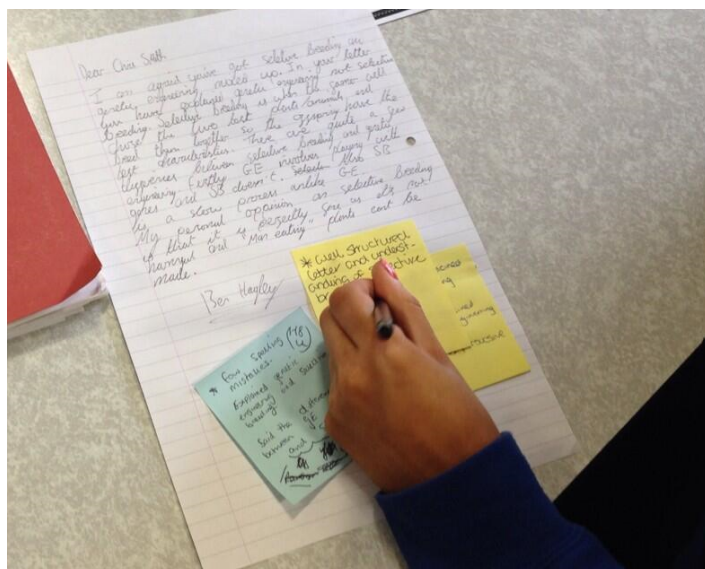 Dear Chris Smith
I am afraid you've got selective breeding and
genetic engineering mixed up. In your letter
you have explained genetic engineering not selective
breeding. Selective breeding is when the farmer will
chose the two best plants/animals and
breed them together so the offspring have the
best characteristics. There are quite a few
differences between selective breeding and genetic
engineering. Firstly GE involves playing with
genes and SB doesn't. Also SB
is a slow process unlike GE
My personal opinion on selective breeding
is that it is perfectly fine as it's not
harmful and "Man eating" plants cant be
made.
Ben Hagley
* Well structured
letter and underst-
anding of
br
ng
gineering
* Few spelling
mistakes.
Explained genetic
engineering and
breeding
Said the
between GE
and